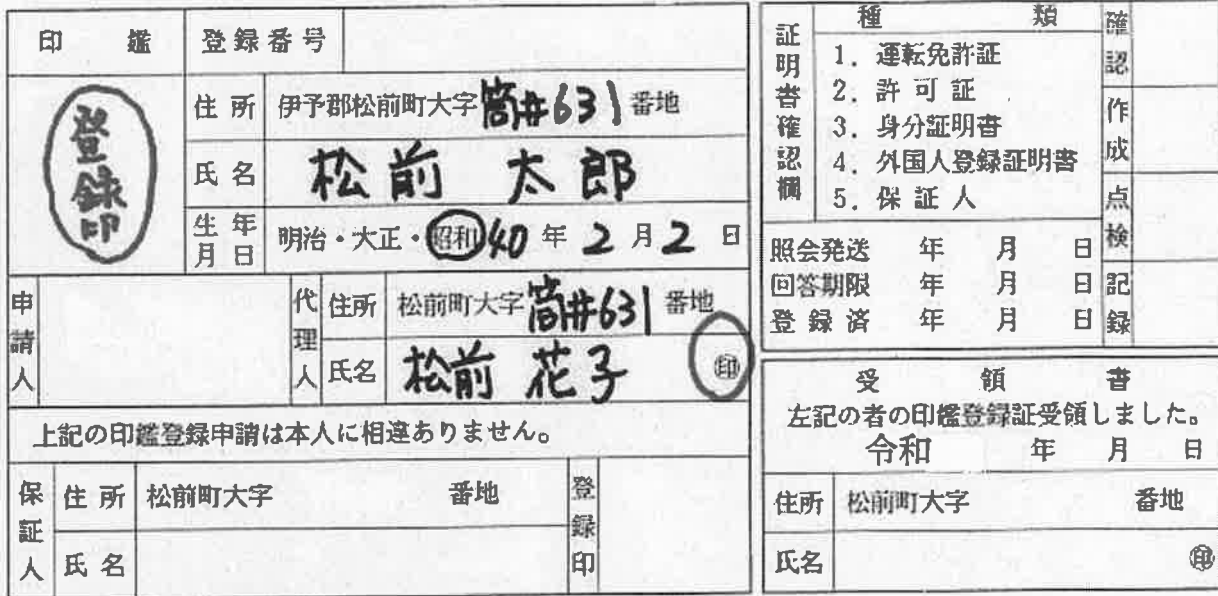 印鑑 登録番号
登録印
住所 伊予郡松前町大字筒井631番地
氏名 松前 太郎
生年月日 明治・大正・昭和40年2月2日
申請人
代理人 住所 松前町大字筒井631番地
氏名 松前 花子 ㊞
上記の印鑑登録申請は本人に相違ありません。
保証人 住所 松前町大字 番地
氏名
登録印
証明書確認欄
種類
1. 運転免許証
2. 許可証
3. 身分証明書
4. 外国人登録証明書
5. 保証人
照会発送 年 月 日
回答期限 年 月 日
登録済 年 月 日
確認
作成
点検
記録
受領書
左記の者の印鑑登録証受領しました。
令和 年 月 日
住所 松前町大字 番地
氏名 ㊞